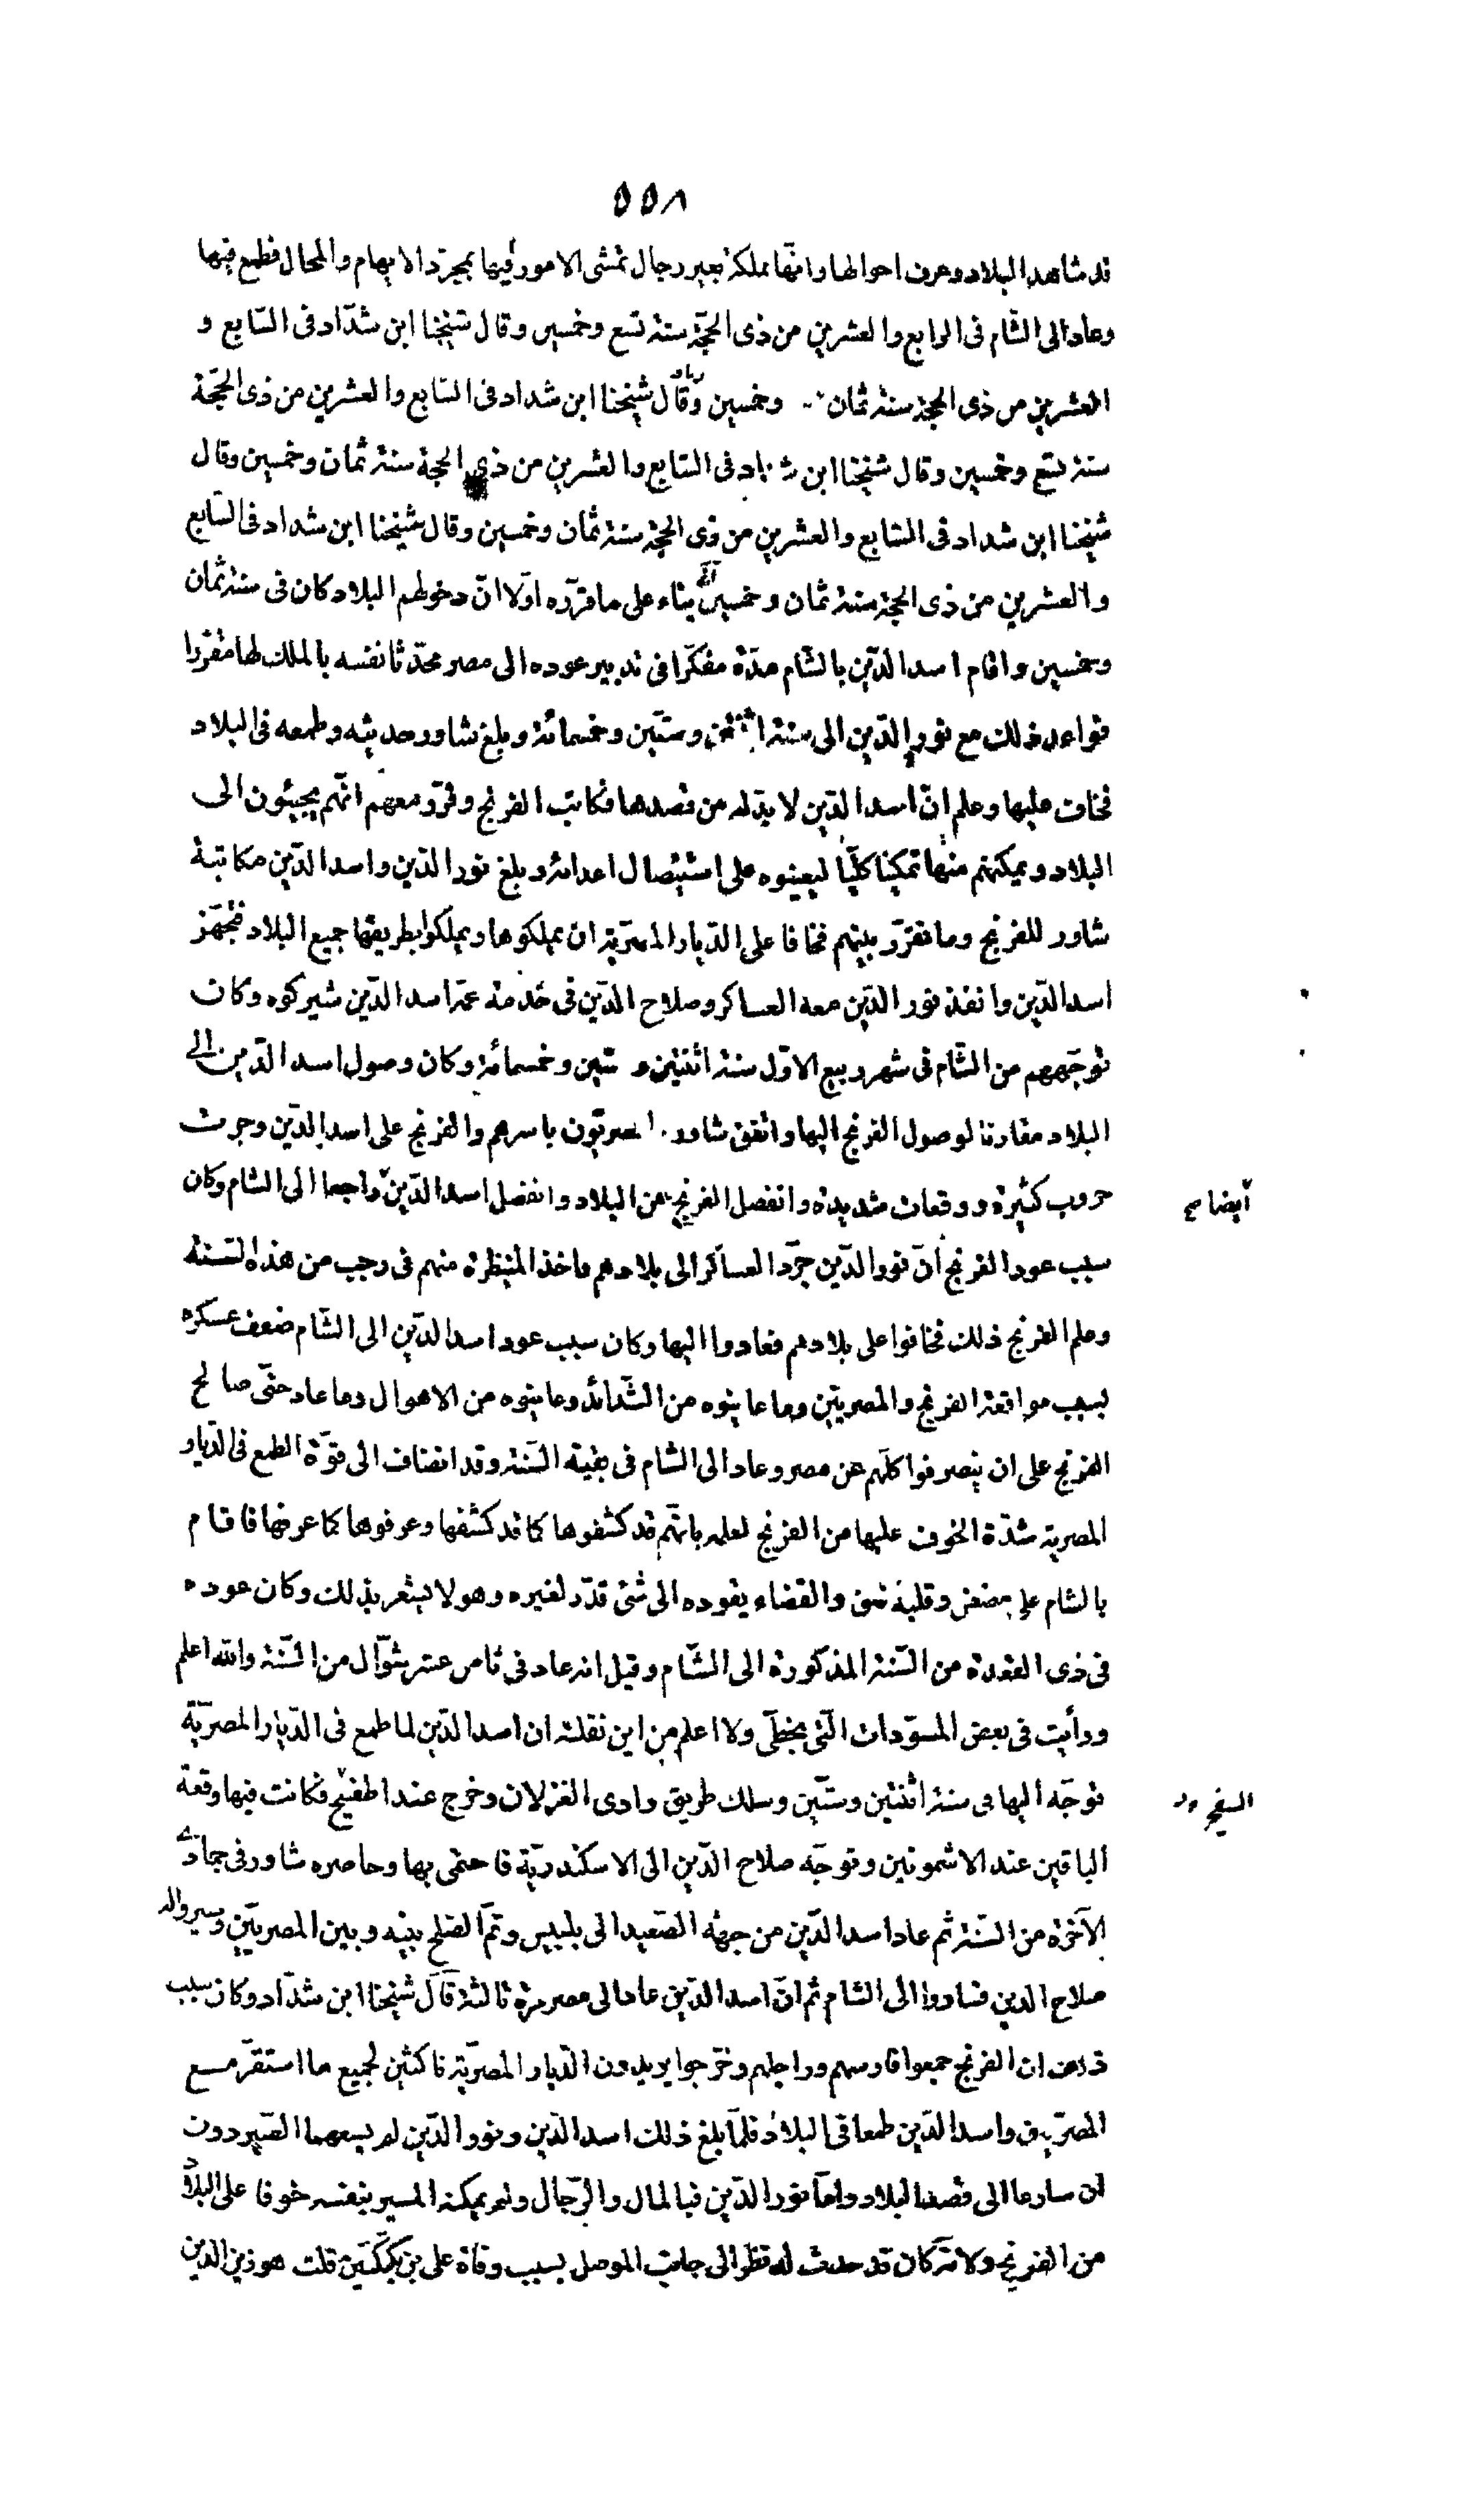 ٥٥٨
قد شاهد البلاد وعرف احوالها وانّها مملكة بغير رجال تمشى الامور فيها بمجرّد الايهام والمحال فطمع فيها
وعاد الى الشّام فى الرابع والعشرين من ذى الحجّة سنة تسع وخمسين وقال شيخنا ابن شدّاد فى السّابع و
العشرين من ذى الحجة سنة ثمان وخمسين وقال شيخنا ابن شداد فى السّابع والعشرين من ذى الحجّة
سنة تسع وخمسين وقال شيخنا ابن شداد فى السّابع والعشرين من ذى الحجة سنة ثمان وخمسين وقال
شيخنا ابن شداد فى السّابع والعشرين من ذى الحجة سنة ثمان وخمسين وقال شيخنا ابن شداد فى السّابع
والعشرين من ذى الحجة سنة ثمان وخمسين بناء على ما قرّره اوّلا انّ دخولهم البلاد كان فى سنة ثمان
وخمسين واقام اسد الدّين بالشّام مدّة مفكّرا فى تدبير عوده الى مصر محدّثا نفسه بالملك لها مقررا
قواعد ذلك مع نور الدّين الى سنة اثنتين وستّين وخمسمائة وبلغ شاور حديثه وطمعه فى البلاد
فخاف عليها وعلم انّ اسد الدّين لا بدّ له من قصدها فكاتب الفرنج وقرّر معهم انّهم يجيئون الى
البلاد ويمكنهم منها تمكينا كلّيّا ليعينوه على استيصال اعدائه وبلغ نور الدّين واسد الدّين مكاتبة
شاور للفرنج وما تقرّر بينهم فخافا على الدّيار المصريّة ان يملكوها ويملكوا بطريقها جميع البلاد فتجهّز
اسد الدّين وانفذ نور الدّين معه العساكر وصلاح الدّين فى خدمة عمّه اسد الدّين شيركوه وكان
توجّههم من الشّام فى شهر ربيع الاوّل سنة اثنتين و ستّين وخمسمائة وكان وصول اسد الدّين الى
البلاد مقارنا لوصول الفرنج اليها واتّفق شاور المصريّون باسرهم والفرنج على اسد الدّين وجرت
حروب كثيرة ووقعات شديدة وانفصل الفرنج عن البلاد وانفصل اسد الدّين راجعا الى الشام وكان
أيضا صح
سبب عود الفرنج أنّ نور الدّين جرّد العساكر الى بلادهم واخذ المنيطرة منهم فى رجب من هذه السّنة
وعلم الفرنج ذلك فخافوا على بلادهم فعادوا اليها وكان سبب عود اسد الدّين الى الشّام ضعف عسكره
بسبب مواقعة الفرنج والمصريّين وما عاينوه من الشّدائد وعاينوه من الاهوال وما عاد حتّى صالح
الفرنج على ان ينصرفوا كلّهم عن مصر وعاد الى الشام فى بقيّة السّنة وقد انضاف الى قوّة الطمع فى الدّيار
المصرية شدّة الخوف عليها من الفرنج لعلمه بانّهم قد كشفوها كما قد كشفها وعرفوها كما عرفها فاقام
بالشام على مضض وقلبه قلق والقضاء يقوده الى شئ قدّر لغيره وهو لا يشعر بذلك وكان عوده
فى ذى القعدة من السّنة المذكورة الى الشّام وقيل انه عاد فى ثامن عشر شوّال من السّنة والله اعلم
ورأيت فى بعض المسوّدات الّتى بخطّى ولا اعلم من اين نقلته ان اسد الدّين لما طمع فى الدّيار المصريّة
توجّه اليها فى سنة اثنتين وستّين وسلك طريق وادى الغزلان وخرج عند اطفيح فكانت فيها وقعة
البابين عند الاشمونين وتوجّه صلاح الدّين الى الاسكندريّة فاحتمى بها وحاصره شاور فى جمادى
الآخرة من السّنة ثم عاد اسد الدّين من جهة الصّعيد الى بلبيس وتمّ الصّلح بينه وبين المصريّين وسيروا له
صلاح الدين فساروا الى الشام ثم انّ اسد الدّين عاد الى مصر مرّة ثالثة قال شيخنا ابن شدّاد وكان سبب
ذلك ان الفرنج جمعوا فارسهم وراجلهم وخرجوا يريدون الدّيار المصريّة ناكثين لجميع ما استقرّ مع
المصريّين واسد الدّين طمعا فى البلاد فلمّا بلغ ذلك اسد الدّين ونور الدّين لم يسعهما الصّبر دون
ان سارعا الى قصد البلاد وامّا نور الدّين فبالمال والرّجال ولم يمكنه المسير بنفسه خوفا على البلاد
من الفرنج ولانّه كان قد حدث له نظر الى جانب الموصل بسبب وفاة على بن بكتكين قلت هو زين الدين